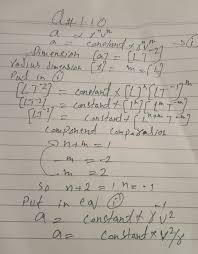 Q#1.10
a ∝ r^n v^m
a = constant × r^n v^m → (i)
Dimension [a] = [L T^-2]
radius dimension [r] = m = [L]
Put in (i)
[L T^-2] = constant × [L]^n [L T^-1]^m
[L T^-2] = constant × [L^n] [L^m T^-m]
[L T^-2] = constant × [L^n+m T^-m]
component comparasion
n + m = 1
-m = -2
m = 2
so n + 2 = 1, n = -1
Put in eq (i)
a = constant × r^-1 v^2
a = constant × v^2/r